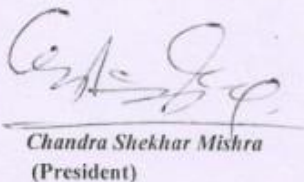 Chandra Shekhar Mishra
(President)